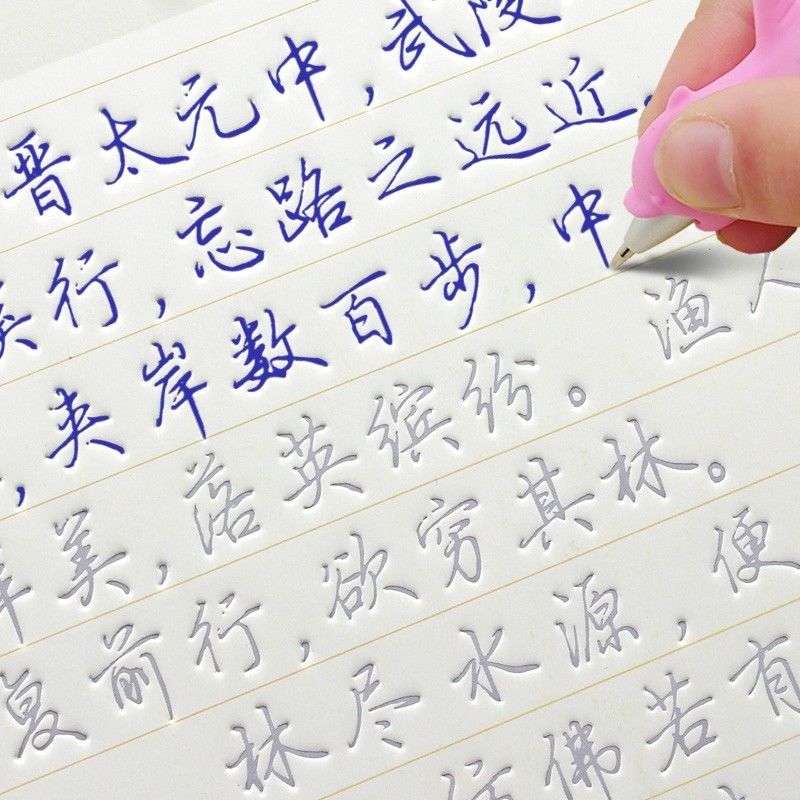 晋太元中,武陵
行,忘路之远近
,夹岸数百步,中
美,落英缤纷。渔人
复前行,欲穷其林。
林尽水源,便
佛若有